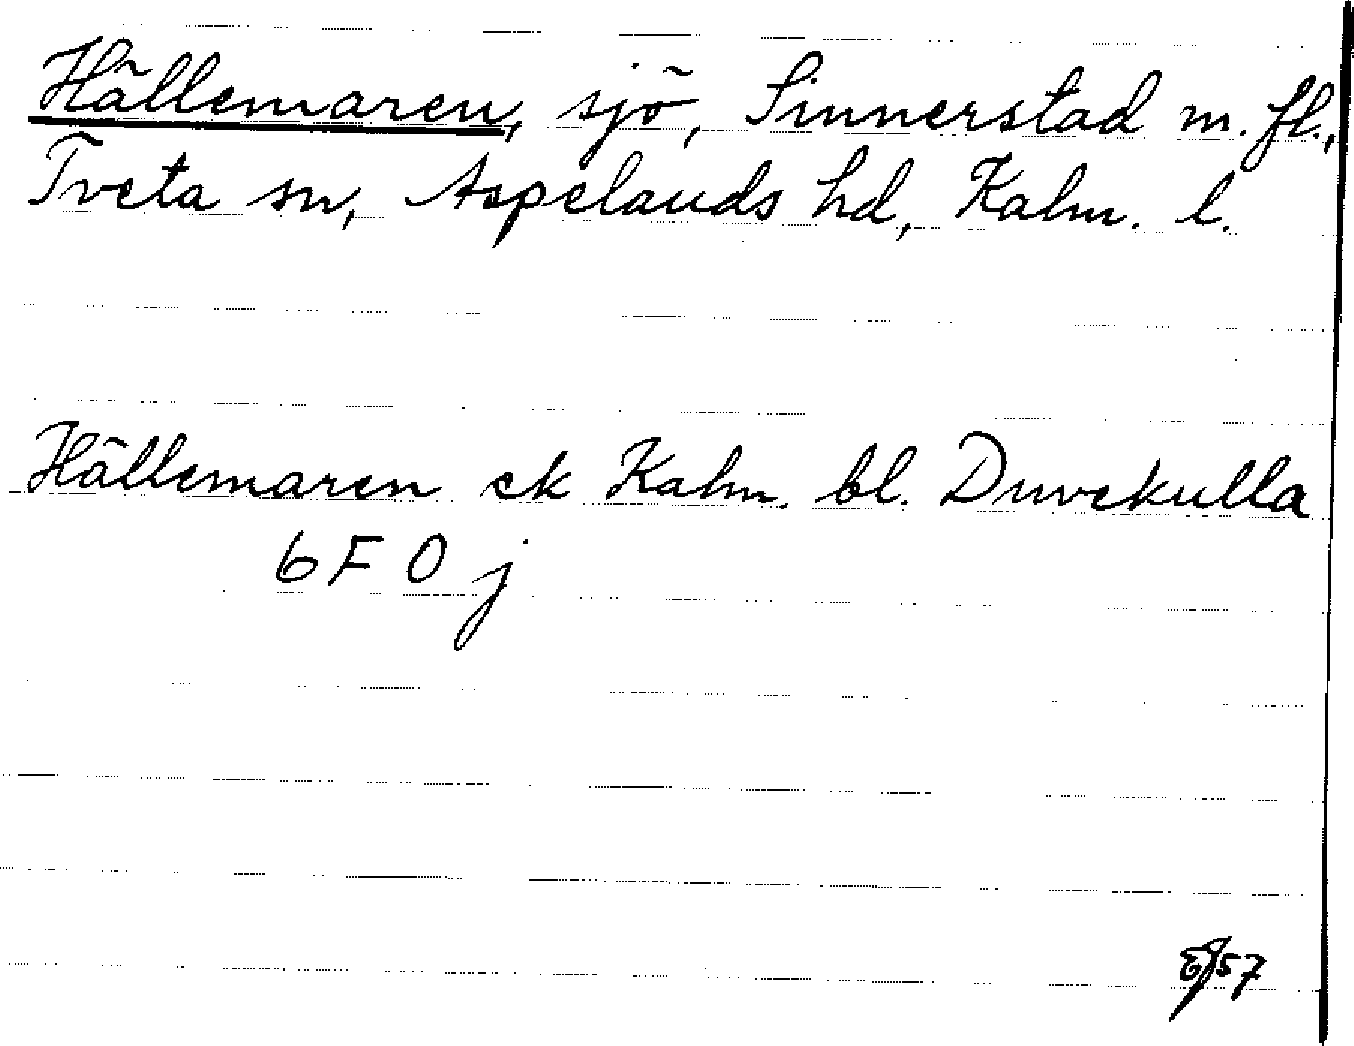 Hällemaren, sjö, Sinnerstad m. fl.,
Tveta sn, Aspelands hd, Kalm. l.
Hällemaren ek Kalm. bl. Duvekulla
6 F 0 j
57